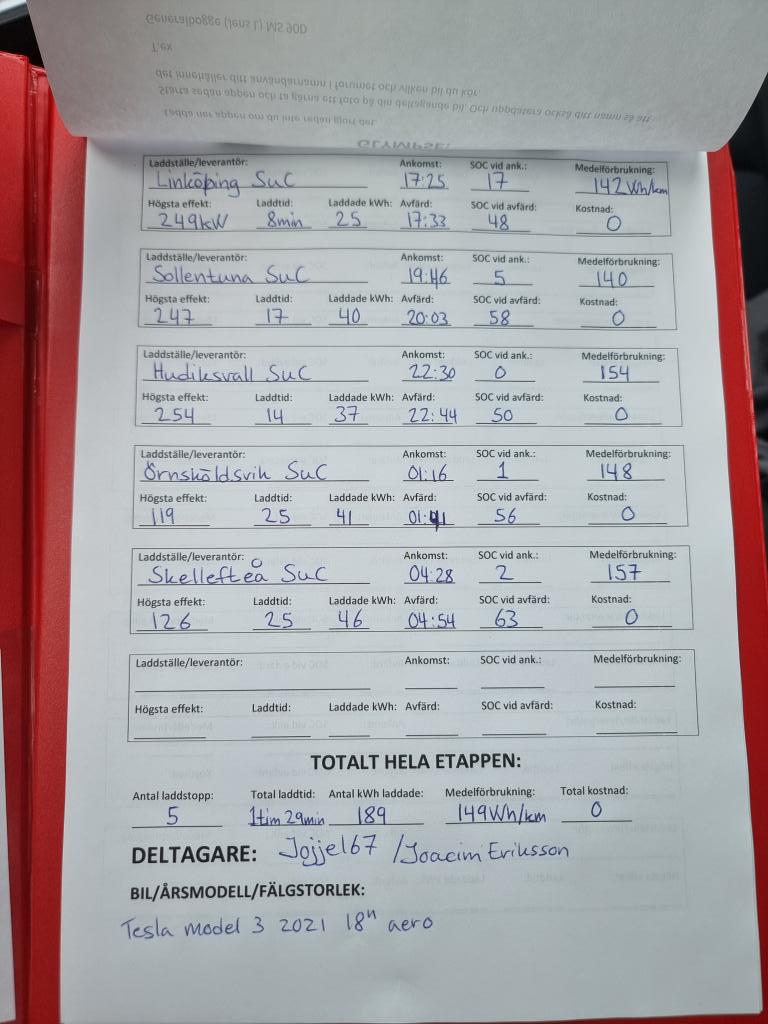 Generalbogge (Jens L) MS 90D
T.ex
det innehåller ditt användarnamn i forumet och vilken bil du kör.
Starta sedan appen och ta gärna ett foto på din deltagande bil. Och uppdatera också ditt namn så att
Ladda ner appen om du inte redan gjort det.
GLYMPSE:
Laddställe/leverantör: Ankomst: SOC vid ank.: Medelförbrukning:
Linköping SuC 17:25 17 142Wh/km
Högsta effekt: Laddtid: Laddade kWh: Avfärd: SOC vid avfärd: Kostnad:
249kW 8min 25 17:33 48 0
Laddställe/leverantör: Ankomst: SOC vid ank.: Medelförbrukning:
Sollentuna SuC 19:46 5 140
Högsta effekt: Laddtid: Laddade kWh: Avfärd: SOC vid avfärd: Kostnad:
247 17 40 20:03 58 0
Laddställe/leverantör: Ankomst: SOC vid ank.: Medelförbrukning:
Hudiksvall SuC 22:30 0 154
Högsta effekt: Laddtid: Laddade kWh: Avfärd: SOC vid avfärd: Kostnad:
254 14 37 22:44 50 0
Laddställe/leverantör: Ankomst: SOC vid ank.: Medelförbrukning:
Örnsköldsvik SuC 01:16 1 148
Högsta effekt: Laddtid: Laddade kWh: Avfärd: SOC vid avfärd: Kostnad:
119 25 41 01:41 56 0
Laddställe/leverantör: Ankomst: SOC vid ank.: Medelförbrukning:
Skellefteå SuC 04:28 2 157
Högsta effekt: Laddtid: Laddade kWh: Avfärd: SOC vid avfärd: Kostnad:
126 25 46 04:54 63 0
Laddställe/leverantör: Ankomst: SOC vid ank.: Medelförbrukning:
Högsta effekt: Laddtid: Laddade kWh: Avfärd: SOC vid avfärd: Kostnad:
TOTALT HELA ETAPPEN:
Antal laddstopp: Total laddtid: Antal kWh laddade: Medelförbrukning: Total kostnad:
5 1tim 29min 189 149Wh/km 0
DELTAGARE: Jojje167 /Joacim Eriksson
BIL/ÅRSMODELL/FÄLGSTORLEK:
Tesla model 3 2021 18" aero